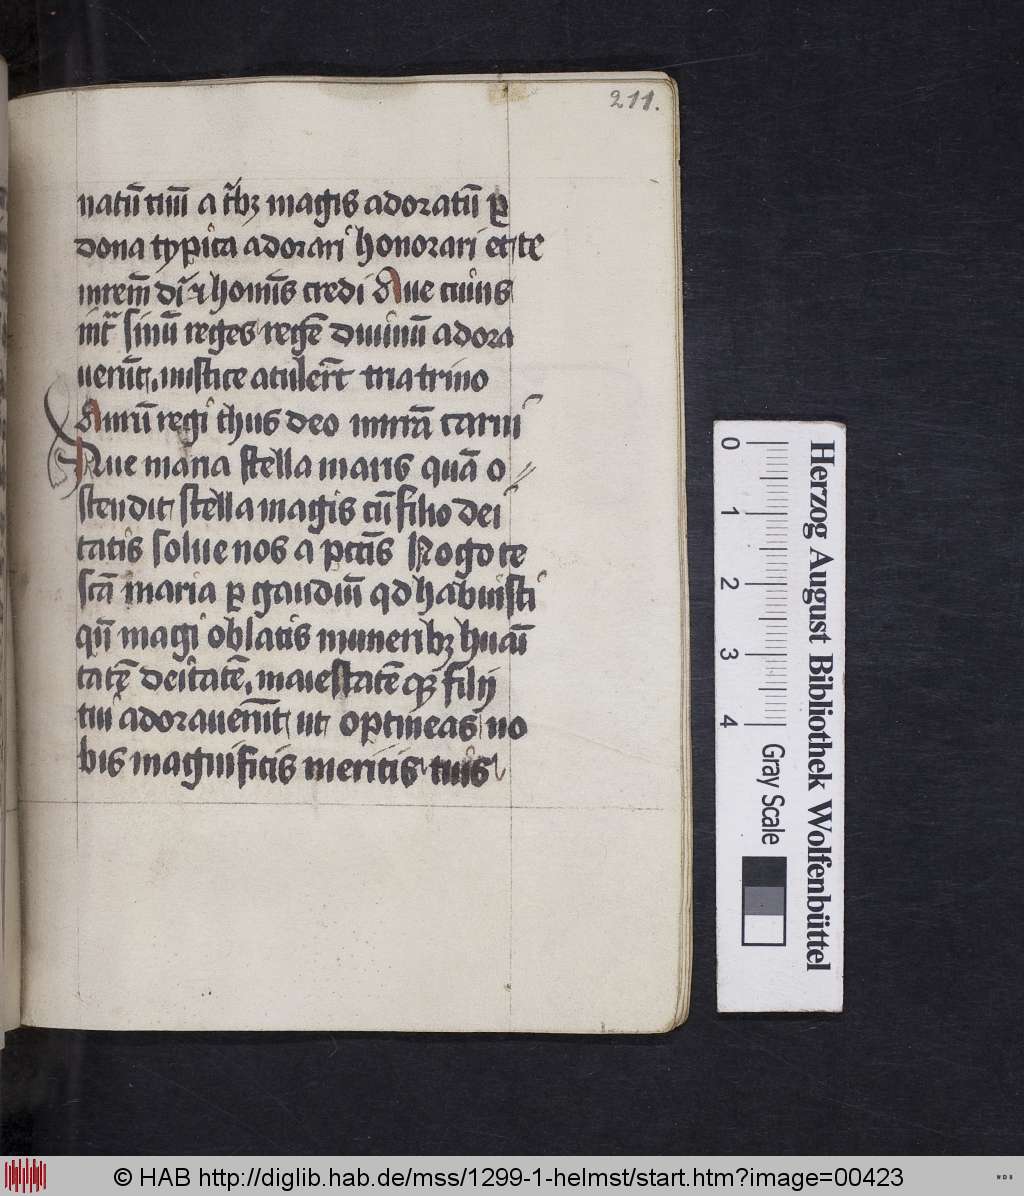 211.
natū tuū a tͥbꝫ magis adoratū ꝑ
dona typica adorari honorari et te
mrēm dī ⁊ homīs credi Aue cuius
int͛ sinū reges regē diuinū adora
uerūt, mistice atulerūt tria trino
Aurū regi thus deo mirrā carni
Aue maria stella maris quā o //
stendit stella magis cū filio dei
tatis solue nos a pctīs Rogo te
scā maria ꝑ gaudiū qd habuisti
qn̄ magi oblatis muneribꝫ huāi
tatē deitatē, maiestatē qꝫ filij
tui adorauerūt ut optineas no
bis magnificis meritis tuis
0 1 2 3 4
Gray Scale
Herzog August Bibliothek Wolfenbüttel
© HAB http://diglib.hab.de/mss/1299-1-helmst/start.htm?image=00423